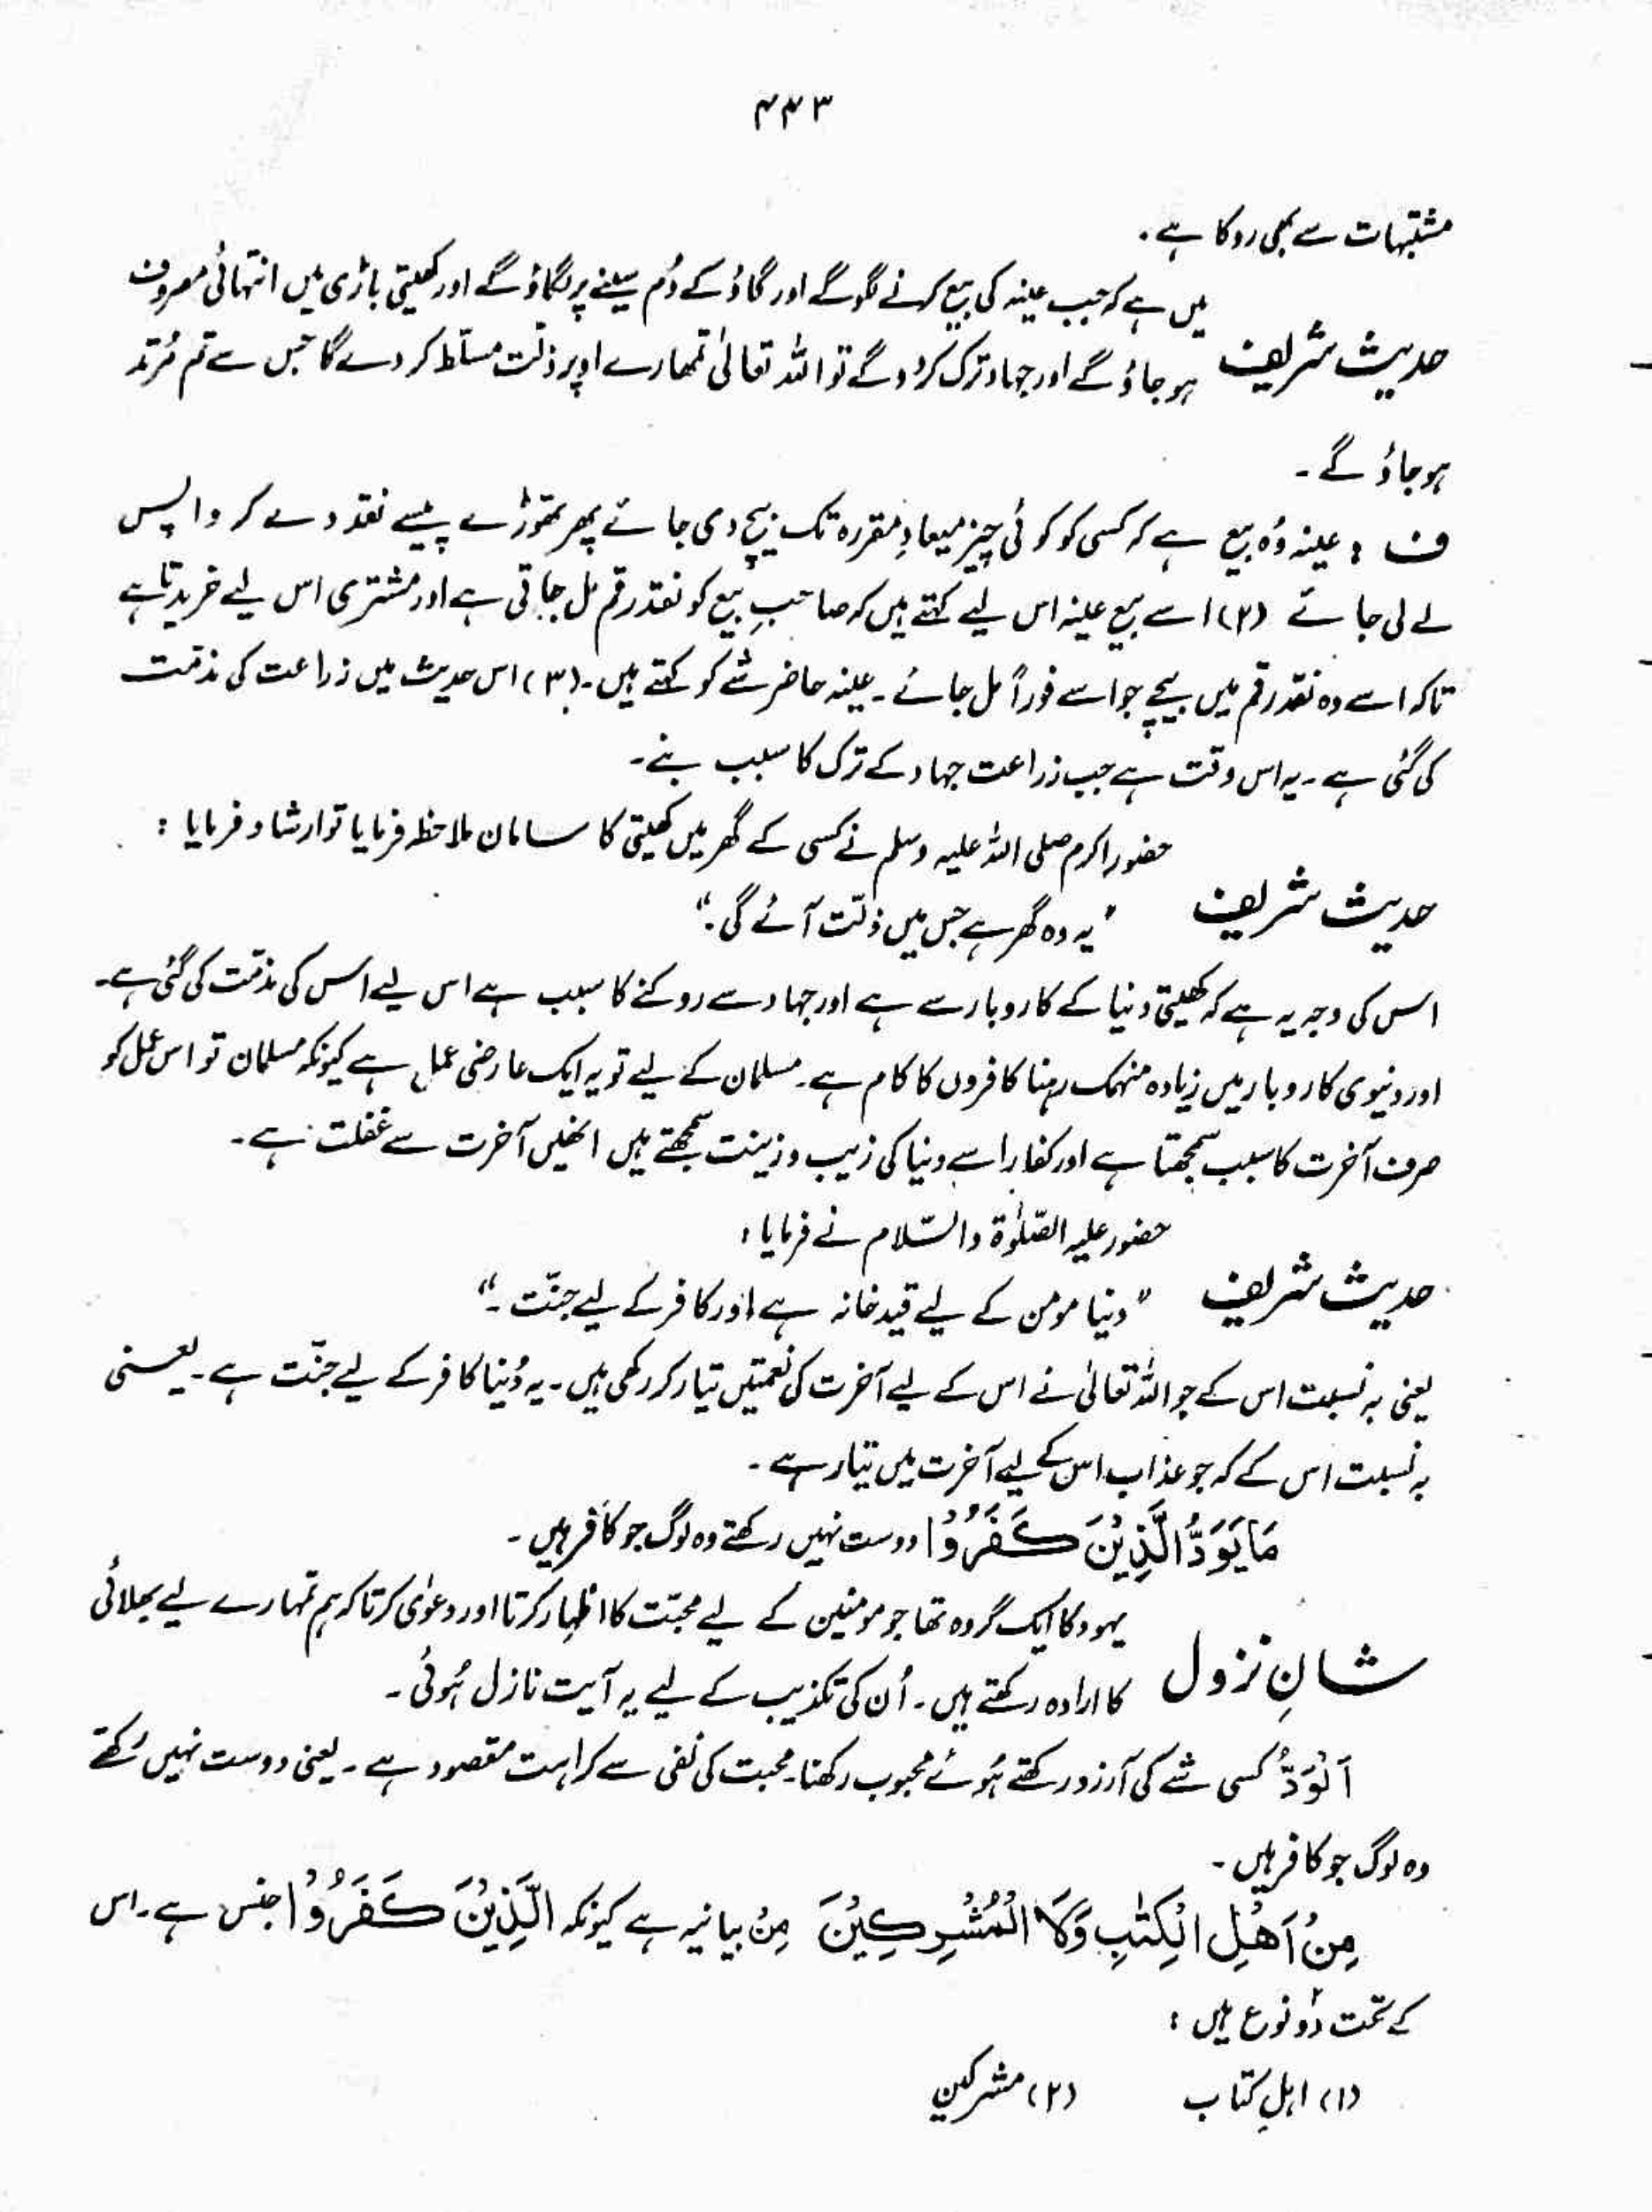 ۴۴۳
مشتبہات سے بھی روکا ہے۔
حدیث شریف میں ہے کہ جب عینہ کی بیع کرنے لگو گے اور گاؤ کے دُم سینے پر لگاؤ گے اور کھیتی باڑی میں انتہائی مصروف
ہو جاؤ گے اور جہاد ترک کر دو گے تو اللہ تعالیٰ تمھارے اوپر ذلت مسلّط کر دے گا جس سے تم مُرتد
ہو جاؤ گے۔
ف : عینہ وُہ بیع ہے کہ کسی کو کوئی چیز میعادِ مقررہ تک بیچ دی جائے پھر تھوڑے پیسے نقد دے کر واپس
لے لی جائے (۲) اسے بیع عینہ اس لیے کہتے ہیں کہ صاحبِ بیع کو نقد رقم مل جاتی ہے اور مشتری اس لیے خریدتا ہے
تاکہ اسے وہ نقد رقم میں بیچے جو اسے فوراً مل جائے۔ عینہ حاضر شے کو کہتے ہیں۔ (۳) اس حدیث میں زراعت کی مذمّت
کی گئی ہے۔ یہ اس وقت ہے جب زراعت جہاد کے ترک کا سبب بنے۔
حضور اکرم صلی اللہ علیہ وسلم نے کسی کے گھر میں کھیتی کا سامان ملاحظہ فرمایا تو ارشاد فرمایا :
حدیث شریف "یہ وہ گھر ہے جس میں ذلّت آئے گی۔"
اس کی وجہ یہ ہے کہ کھیتی دنیا کے کاروبار سے ہے اور جہاد سے روکنے کا سبب ہے اس لیے اس کی مذمّت کی گئی ہے۔
اور دنیوی کاروبار میں زیادہ منہمک رہنا کافروں کا کام ہے۔ مسلمان کے لیے تو یہ ایک عارضی عمل ہے کیونکہ مسلمان تو اس عمل کو
صرف آخرت کا سبب سمجھتا ہے اور کفار اسے دنیا کی زیب و زینت سمجھتے ہیں انھیں آخرت سے غفلت ہے۔
حضور علیہ الصّلوٰۃ والسّلام نے فرمایا :
حدیث شریف "دنیا مومن کے لیے قید خانہ ہے اور کافر کے لیے جنّت۔"
یعنی بہ نسبت اس کے جو اللہ تعالیٰ نے اس کے لیے آخرت کی نعمتیں تیار کر رکھی ہیں۔ یہ دُنیا کافر کے لیے جنّت ہے۔ یعنی
بہ نسبت اس کے کہ جو عذاب اس کے لیے آخرت میں تیار ہے۔
مَا يَوَدُّ الَّذِيْنَ كَفَرُوْا دوست نہیں رکھتے وہ لوگ جو کافر ہیں۔
یہود کا ایک گروہ تھا جو مومنین کے لیے محبّت کا اظہار کرتا اور دعوٰی کرتا کہ ہم تمہارے لیے بھلائی
شانِ نزول کا ارادہ رکھتے ہیں۔ اُن کی تکذیب کے لیے یہ آیت نازل ہُوئی۔
اَلْوَدُّ کسی شے کی آرزو رکھتے ہُوئے محبوب رکھنا۔ محبت کی نفی سے کراہت مقصود ہے۔ یعنی دوست نہیں رکھتے
وہ لوگ جو کافر ہیں۔
مِنْ اَهْلِ الْكِتٰبِ وَلَا الْمُشْرِكِيْنَ مِنْ بیانیہ ہے کیونکہ الَّذِيْنَ كَفَرُوْا جنس ہے۔ اس
کے تحت دُو نوع ہیں :
(۱) اہلِ کتاب (۲) مشرکین